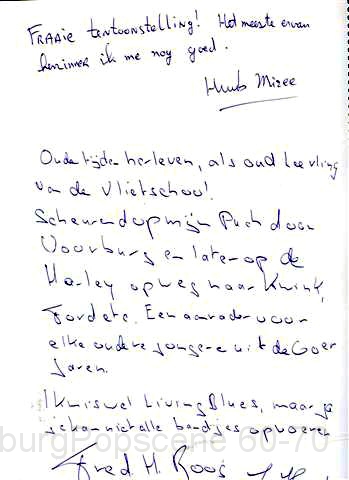 FRAAIE tentoonstelling! Het meeste ervan
herinner ik me nog goed.
Huub Mizee
Oude tijden herleven, als oud leerling
van de Vlietschool.
Scheurend op mijn Puch door
Voorburg en later op de
Harley op weg naar Kwink,
Fordate. Een aanrader voor
elke oudere jongere uit de 60er
jaren.
Ik mis wel Living Blues, maar ja
je kan niet alle bandjes opvoeren
burgPopscene 60-70
Fred. H. Roos